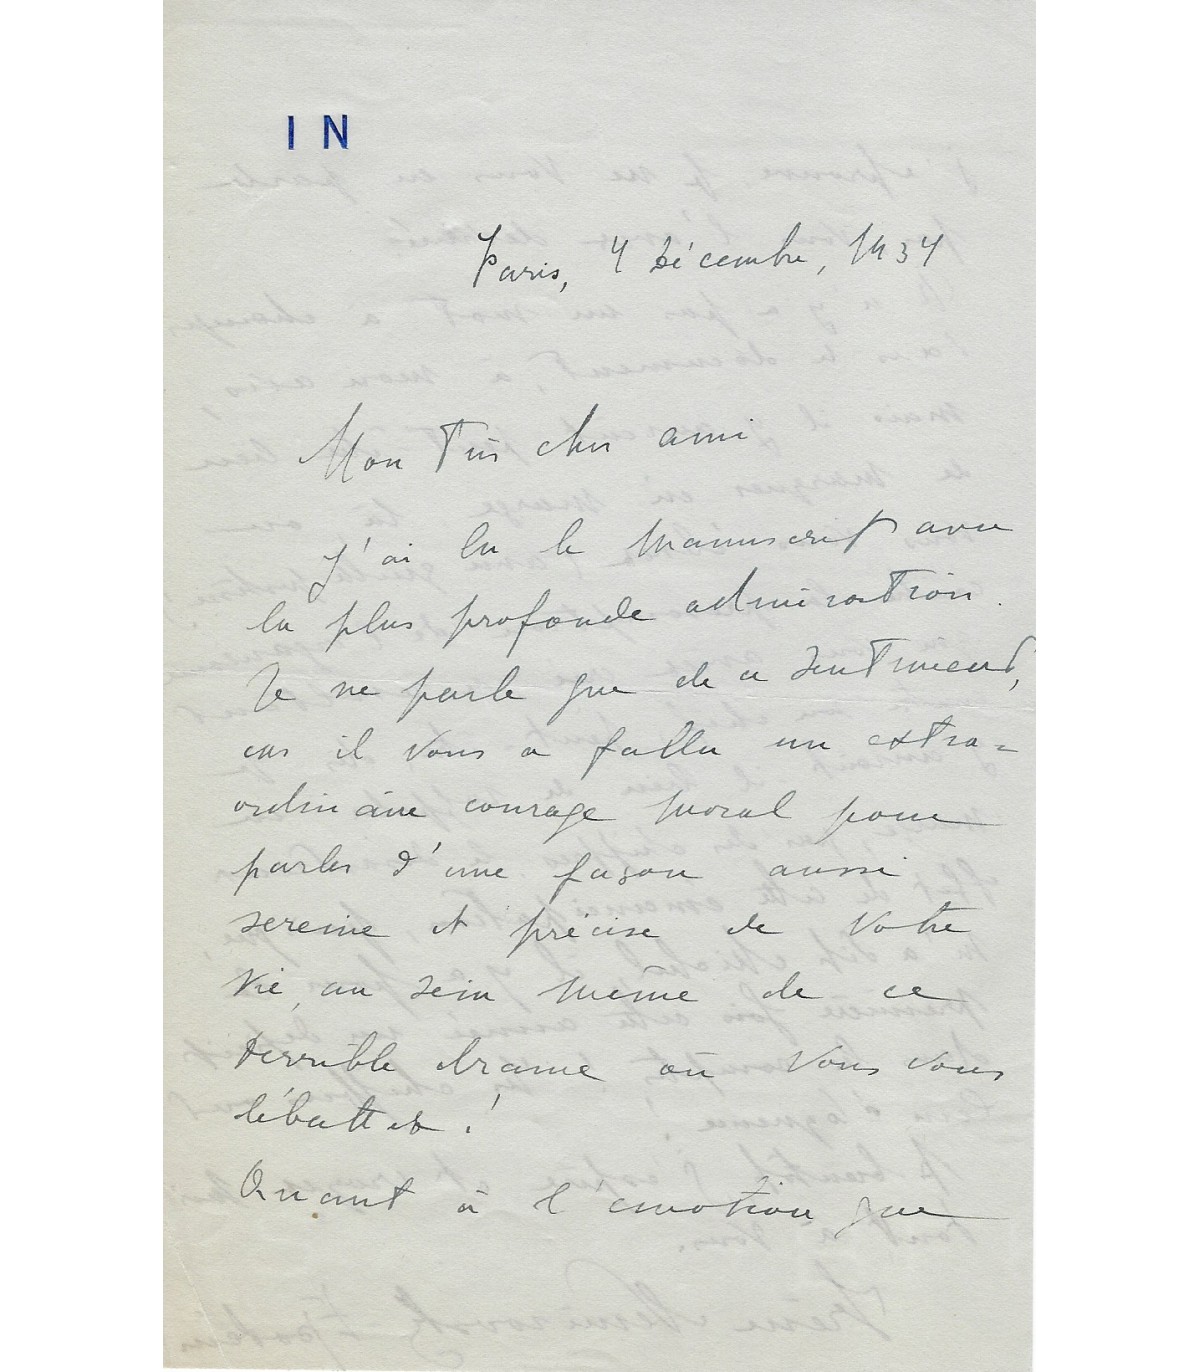 I N
Paris, 4 Décembre, 1934
Mon très cher ami
J'ai lu le manuscrit avec
la plus profonde admiration.
Je ne parle que de ce sentiment,
car il vous a fallu un extra=
ordinaire courage moral pour
parler d'une façon aussi
sereine et précise de votre
vie, au sein même de ce
terrible drame où vous vous
débattez !
Quant à l'émotion que